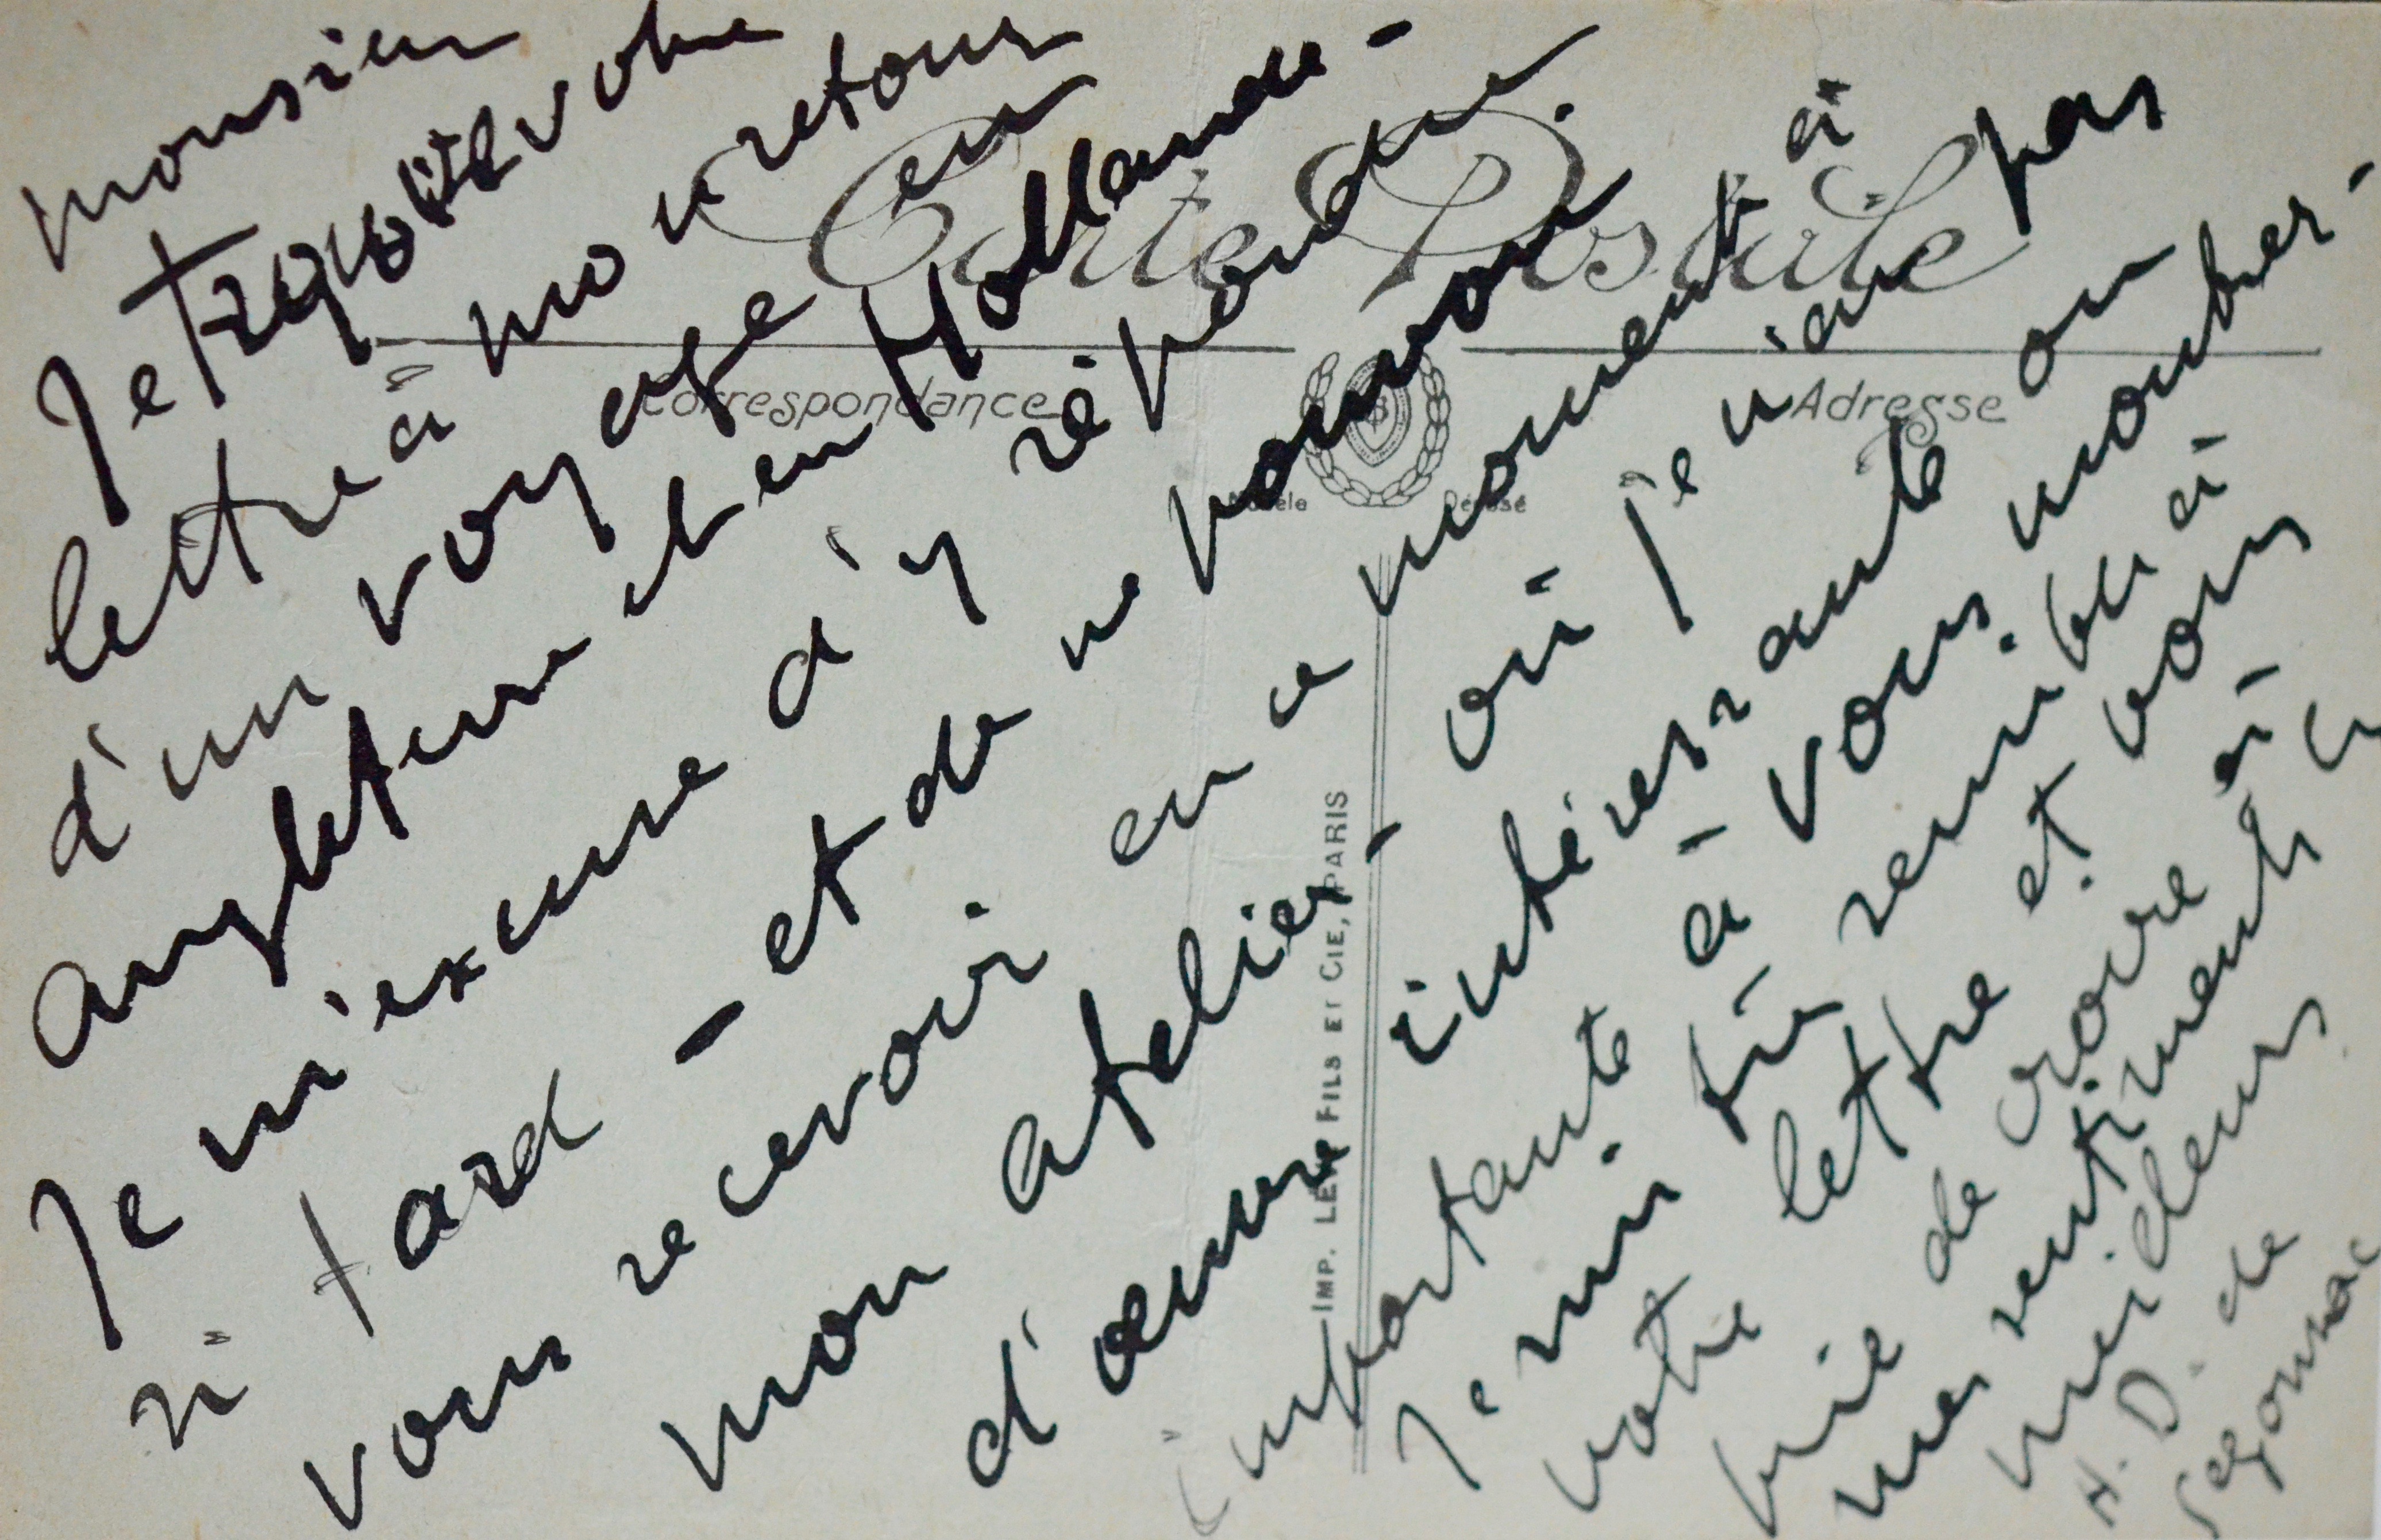 Carte Postale
Correspondance
Adresse
Modèle Déposé
IMP. LÉVY FILS ET CIE, PARIS
monsieur
Je votre
lettre à mon retour
d'un voyage en
angleterre et en Hollande -
Je m'excuse d'y répondre
si tard - et de ne pouvoir
vous recevoir en ce moment à
mon atelier - où je n'ai pas
d'œuvre intéressante ou
importante à vous montrer -
Je suis très sensible à
votre lettre et vous
prie de croire à
mes sentiments
meilleurs
A. D. de
Segonzac